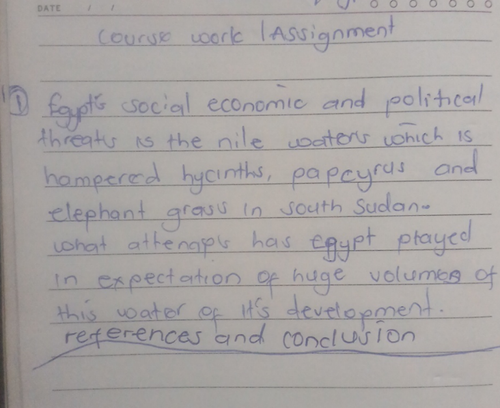 DATE / /
Course work / Assignment
① Egypt's social economic and political
threats is the nile waters which is
hampered hycinths, papcyrus and
elephant grass in south Sudan.
what attemaps has Egypt played
in expectation of huge volumes of
this water of it's development.
references and conclusion